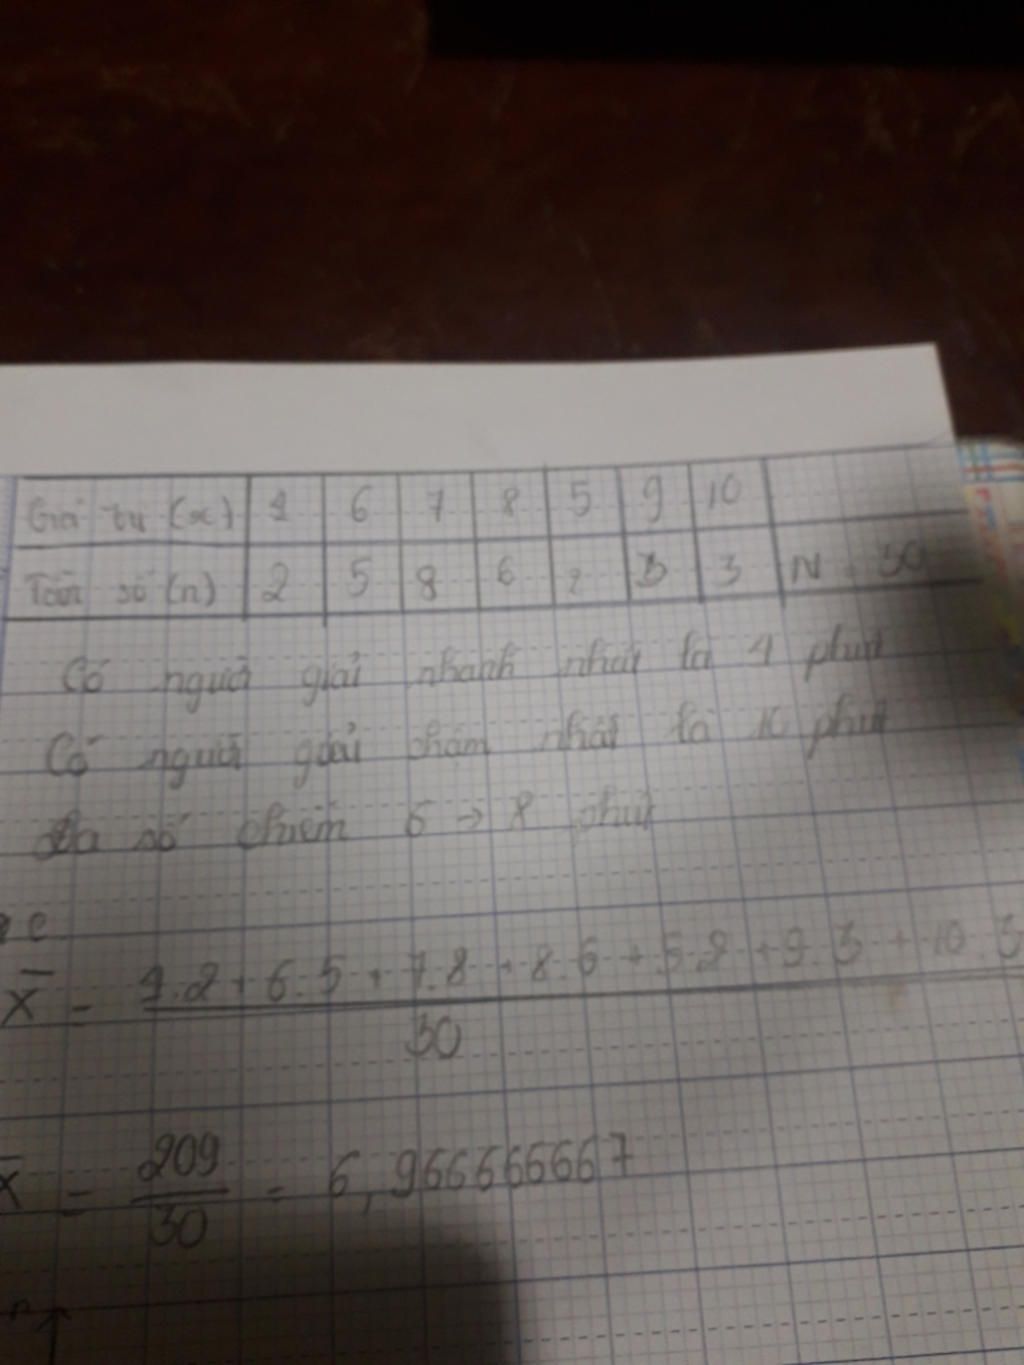 Giá trị (x) 4 6 7 8 5 9 10
Tần số (n) 2 5 8 6 2 3 3 N = 30
Có người giải nhanh nhất là 4 phút
Có người giải chậm nhất là 10 phút
Đa số chiếm 6 → 8 phút
X̄ = 4.2 + 6.5 + 7.8 + 8.6 + 5.2 + 9.3 + 10.3
30
X̄ = 209 = 6,966666667
30